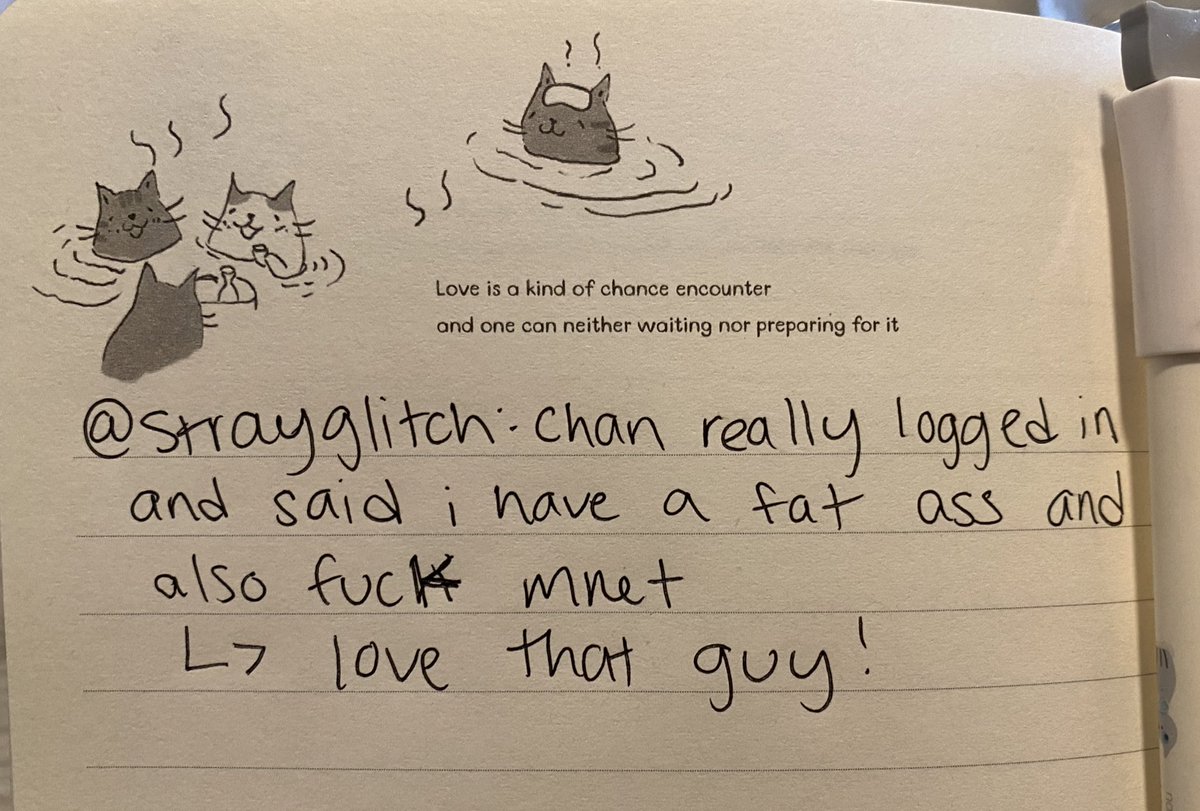 Love is a kind of chance encounter
and one can neither waiting nor preparing for it
@strayglitch: chan really logged in
and said i have a fat ass and
also fuck mnet
↳ love that guy!